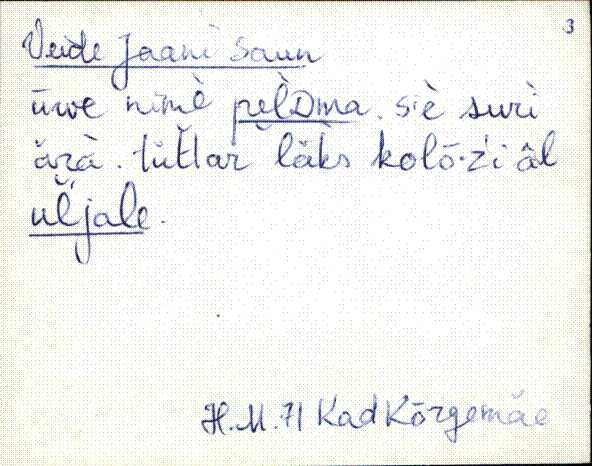 3
Veide Jaani Saun
ūwe nimè pèlDma. siè suri
ärà. tüttar läks kolō·z'i âl
ul̆jale.
H.M. 71 Kad Kõrgemäe